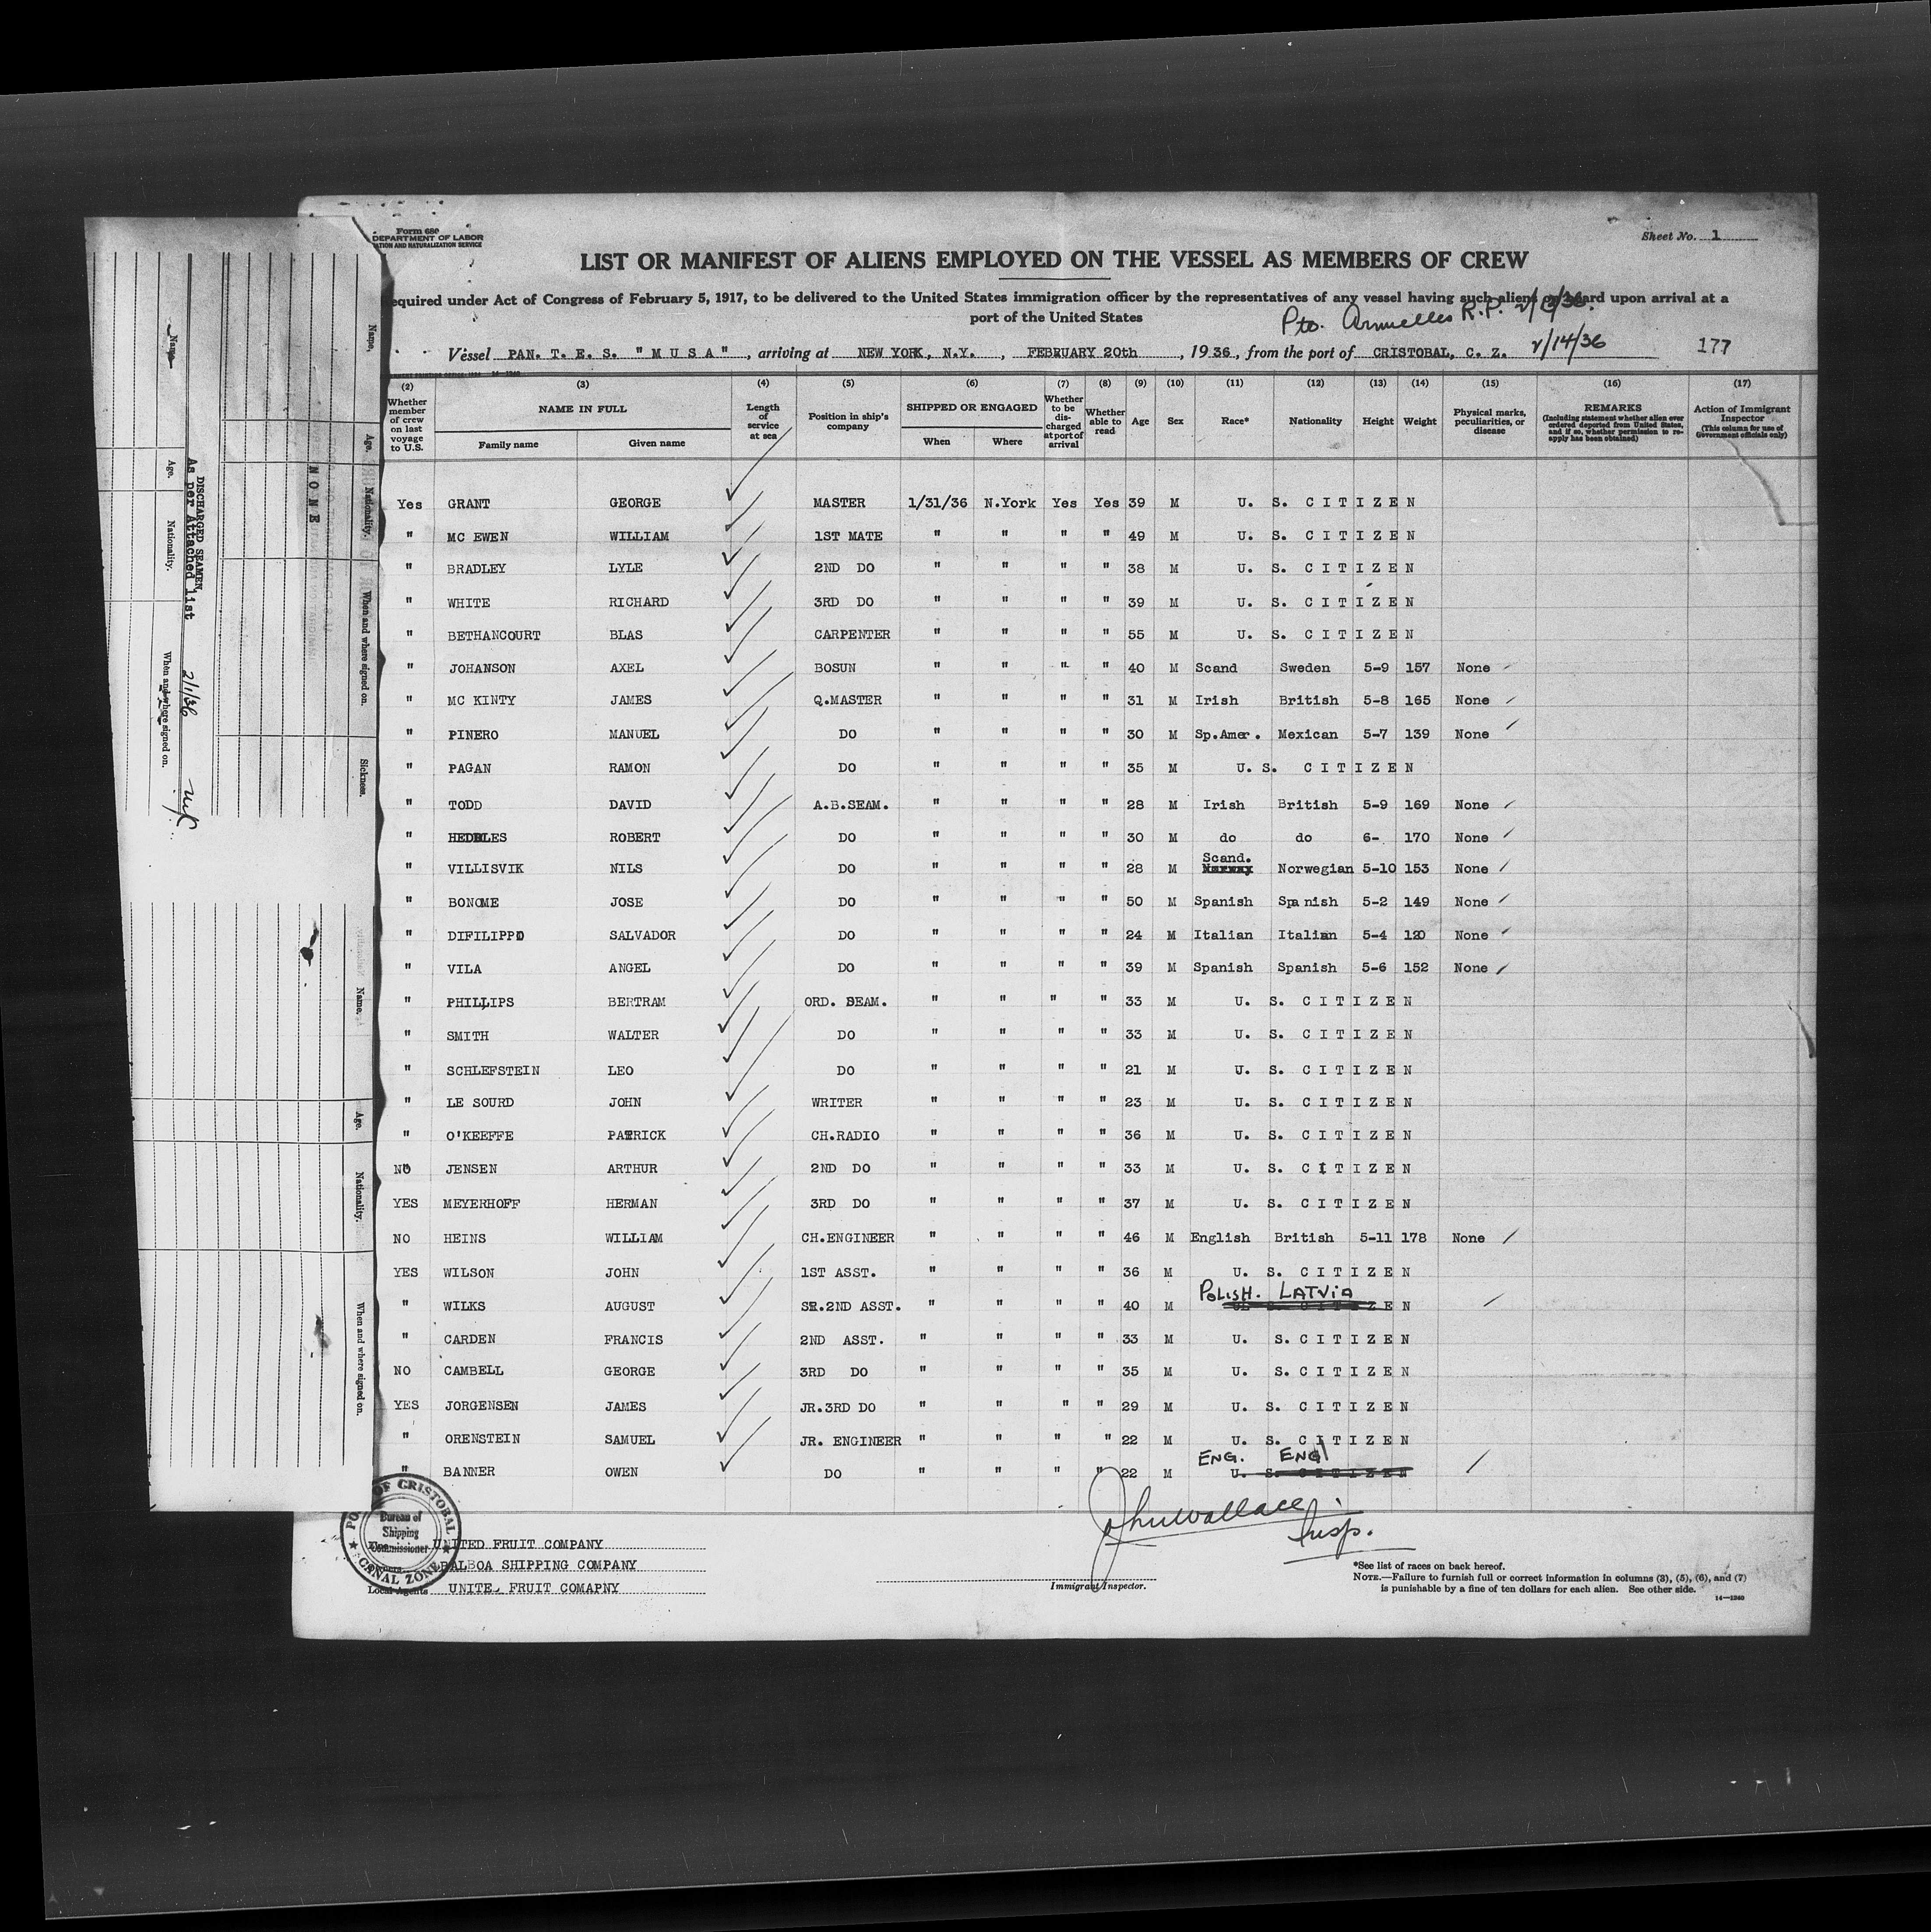 Form 680
DEPARTMENT OF LABOR
ATION AND NATURALIZATION SERVICE
Sheet No. 1
LIST OR MANIFEST OF ALIENS EMPLOYED ON THE VESSEL AS MEMBERS OF CREW
equired under Act of Congress of February 5, 1917, to be delivered to the United States immigration officer by the representatives of any vessel having such aliens on board upon arrival at a
port of the United States
Pto. Armuelles R.P.
Vessel PAN. T. E. S. "M U S A", arriving at NEW YORK, N.Y., FEBRUARY 20th, 1936, from the port of CRISTOBAL, C. Z. 2/14/36 177
(2) (3) (4) (5) (6) (7) (8) (9) (10) (11) (12) (13) (14) (15) (16) (17)
Whether member of crew on last voyage to U.S. NAME IN FULL Family name Given name Length of service at sea Position in ship's company SHIPPED OR ENGAGED When Where Whether to be discharged at port of arrival Whether able to read Age Sex Race* Nationality Height Weight Physical marks, peculiarities, or disease REMARKS (Including statement whether alien ever ordered deported from United States, and if so, whether permission to reapply has been obtained) Action of Immigrant Inspector (This column for use of Government officials only)
Yes GRANT GEORGE MASTER 1/31/36 N.York Yes Yes 39 M U. S. C I T I Z E N
" MC EWEN WILLIAM 1ST MATE " " " " 49 M U. S. C I T I Z E N
" BRADLEY LYLE 2ND DO " " " " 38 M U. S. C I T I Z E N
" WHITE RICHARD 3RD DO " " " " 39 M U. S. C I T I Z E N
" BETHANCOURT BLAS CARPENTER " " " " 55 M U. S. C I T I Z E N
" JOHANSON AXEL BOSUN " " " " 40 M Scand Sweden 5-9 157 None
" MC KINTY JAMES Q.MASTER " " " " 31 M Irish British 5-8 165 None
" PINERO MANUEL DO " " " " 30 M Sp.Amer. Mexican 5-7 139 None
" PAGAN RAMON DO " " " " 35 M U. S. C I T I Z E N
" TODD DAVID A.B.SEAM. " " " " 28 M Irish British 5-9 169 None
" ROBERT DO " " " " 30 M do do 6- 170 None
" VILLISVIK NILS DO " " " " 28 M Scand. Norway Norwegian 5-10 153 None
" BONOME JOSE DO " " " " 50 M Spanish Spanish 5-2 149 None
" DIFILIPPO SALVADOR DO " " " " 24 M Italian Italian 5-4 120 None
" VILA ANGEL DO " " " " 39 M Spanish Spanish 5-6 152 None
" PHILLIPS BERTRAM ORD. SEAM. " " " " 33 M U. S. C I T I Z E N
" SMITH WALTER DO " " " " 33 M U. S. C I T I Z E N
" SCHLEFSTEIN LEO DO " " " " 21 M U. S. C I T I Z E N
" LE SOURD JOHN WRITER " " " " 23 M U. S. C I T I Z E N
" O'KEEFFE PATRICK CH.RADIO " " " " 36 M U. S. C I T I Z E N
NO JENSEN ARTHUR 2ND DO " " " " 33 M U. S. C I T I Z E N
YES MEYERHOFF HERMAN 3RD DO " " " " 37 M U. S. C I T I Z E N
NO HEINS WILLIAM CH.ENGINEER " " " " 46 M English British 5-11 178 None
YES WILSON JOHN 1ST ASST. " " " " 36 M U. S. C I T I Z E N
" WILKS AUGUST SR.2ND ASST. " " " " 40 M POLISH. LATVIA U. S. C I T I Z E N
" CARDEN FRANCIS 2ND ASST. " " " " 33 M U. S. C I T I Z E N
NO CAMBELL GEORGE 3RD DO " " " " 35 M U. S. C I T I Z E N
YES JORGENSEN JAMES JR.3RD DO " " " " 29 M U. S. C I T I Z E N
" ORENSTEIN SAMUEL JR. ENGINEER " " " " 22 M U. S. C I T I Z E N
" BANNER OWEN DO " " " " 22 M ENG. ENGl U. S. C I T I Z E N
John Wallace
Insp.
Immigrant Inspector.
UNITED FRUIT COMPANY
BALBOA SHIPPING COMPANY
Local Agents UNITE FRUIT COMAPNY
OF CRISTOBAL
Bureau of
Shipping
Commissioner
CANAL ZONE
*See list of races on back hereof.
NOTE.—Failure to furnish full or correct information in columns (3), (5), (6), and (7)
is punishable by a fine of ten dollars for each alien. See other side.
14—1240
Name. Age. Nationality. When and where signed on. Sickness.
NONE
DISCHARGED SEAMEN
As per Attached list 2/1/36
Name. Age. Nationality. When and where signed on.
Name. Age. Nationality. When and where signed on.